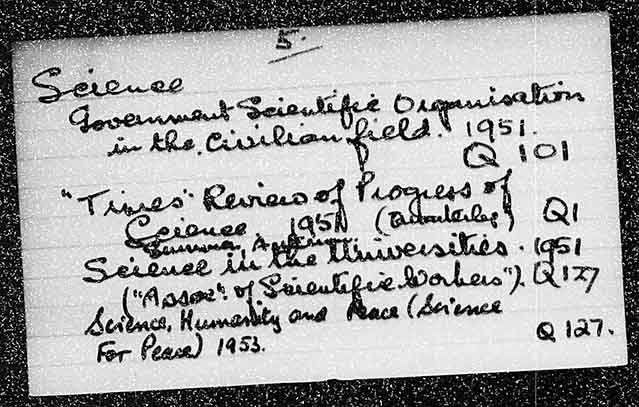 5.
Science
Government Scientific Organisation
in the Civilian field. 1951.
Q 101
"Times" Review of Progress of
Science 1951 (Quarterley) Q1
Summer, Autumn
Science in the Universities. 1951
("Assoc": of Scientific Workers"). Q127
Science, Humanity and Peace (Science
For Peace) 1953. Q 127.